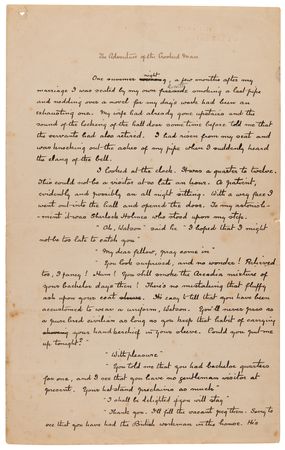 The Adventure of the Crooked Man
One summer night, a few months after my
marriage I was seated by my own hearth smoking a last pipe
and nodding over a novel for my day's work had been an
exhausting one. My wife had already gone upstairs and the
sound of the locking of the hall door some time before told me that
the servants had also retired. I had risen from my seat and
was knocking out the ashes of my pipe when I suddenly heard
the clang of the bell.
I looked at the clock. It was a quarter to twelve.
This could not be a visitor at so late an hour. A patient,
evidently and possibly an all night sitting. With a wry face I
went out into the hall and opened the door. To my astonish-
ment it was Sherlock Holmes who stood upon my step.
"Ah, Watson" said he "I hoped that I might
not be too late to catch you"
"My dear fellow, pray come in"
"You look surprised, and no wonder! Relieved
too, I fancy! Hum! You still smoke the Arcadia mixture of
your bachelor days then! There's no mistaking that fluffy
ash upon your coat. Its easy to tell that you have been
accustomed to wear a uniform, Watson. You'll never pass as
a pure bred civilian as long as you keep that habit of carrying
your handkerchief in your sleeve. Could you put me
up tonight?"
"With pleasure"
"You told me that you had bachelor quarters
for one, and I see that you have no gentleman visitor at
present. Your hat stand proclaims as much"
"I shall be delighted if you will stay"
"Thank you. I'll fill the vacant peg then. Sorry to
see that you have had the British workman in the house. He's